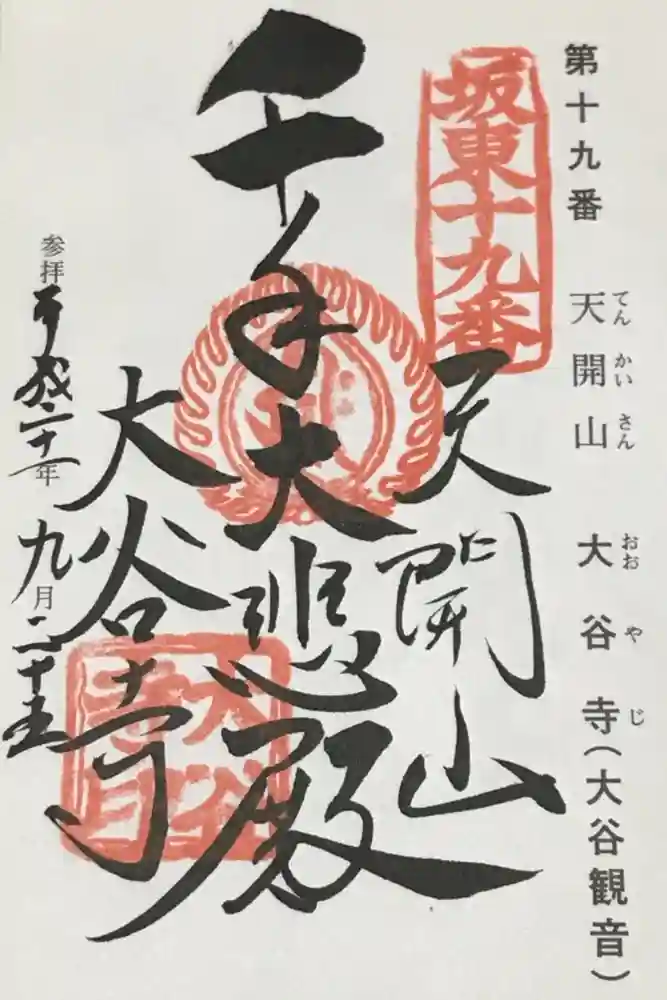 第十九番 天開山 大谷寺(大谷観音)
てんかいさん おおやじ
坂東十九番
天開山
千手大悲殿
大谷寺
大谷寺印
参拝 平成二十一年 九月二十五